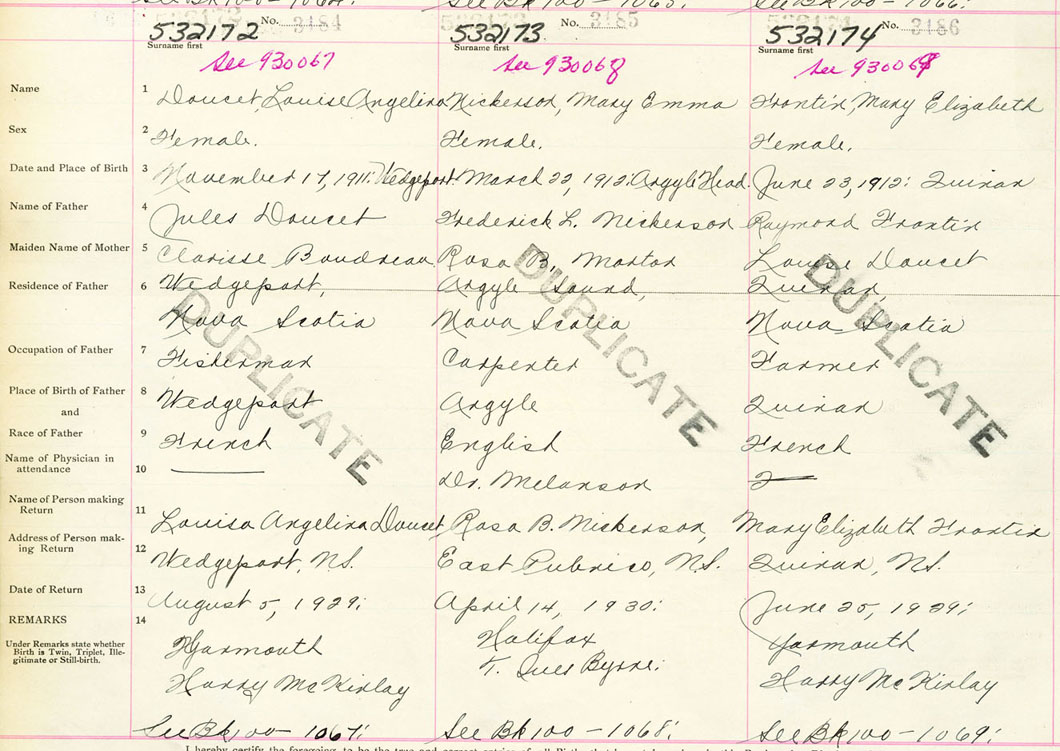 See Bk 100 - 1064. See Bk 100 - 1065. See Bk 100 - 1066.
532172 No. 3184 532173 No. 3185 532174 No. 3186
Surname first Surname first Surname first
See 930067 See 930068 See 930069
Name 1 Doucet, Louise Angelina Nickerson, Mary Emma Frontin, Mary Elizabeth
Sex 2 Female. Female. Female.
Date and Place of Birth 3 November 17, 1911: Wedgeport. March 22, 1912: Argyle Head. June 23, 1912: Quinan
Name of Father 4 Jules Doucet Frederick L. Nickerson Raymond Frontin
Maiden Name of Mother 5 Clarisse Boudreau Rosa B. Morton Louise Doucet
Residence of Father 6 Wedgeport, Argyle Sound, Quinan,
Nova Scotia Nova Scotia Nova Scotia
Occupation of Father 7 Fisherman Carpenter Farmer
Place of Birth of Father 8 Wedgeport Argyle Quinan
and
Race of Father 9 French English French
Name of Physician in
attendance 10 Dr. Melanson
Name of Person making
Return 11 Louisa Angelina Doucet Rosa B. Nickerson, Mary Elizabeth Frontin
Address of Person mak-
ing Return 12 Wedgeport, N.S. East Pubnico, N.S. Quinan, N.S.
Date of Return 13 August 5, 1929: April 14, 1930: June 25, 1929:
REMARKS 14 Yarmouth Halifax Yarmouth
Under Remarks state whether
Birth is Twin, Triplet, Ille-
gitimate or Still-birth.
Harry McKinlay Byrne. Harry McKinlay
See Bk 100 - 1067: See Bk 100 - 1068: See Bk 100 - 1069:
I hereby certify the foregoing to be the true and correct entries of all Births
DUPLICATE
DUPLICATE
DUPLICATE